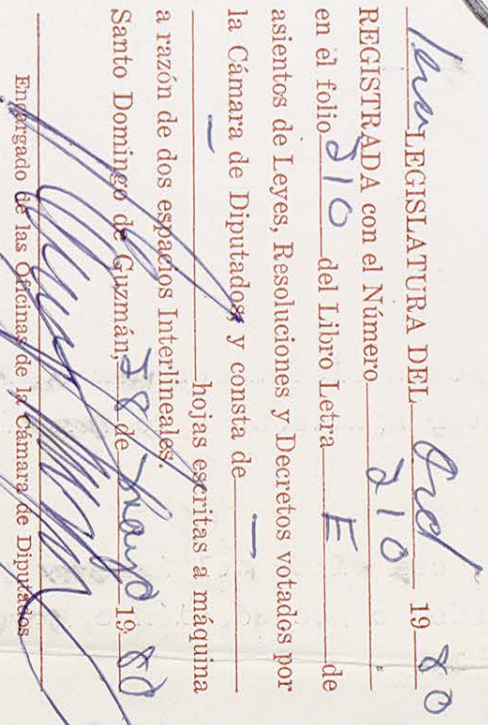 1era LEGISLATURA DEL Ord 1980
REGISTRADA con el Número 210
en el folio 210 del Libro Letra E de
asientos de Leyes, Resoluciones y Decretos votados por
la Cámara de Diputados, y consta de —
— hojas escritas a máquina
a razón de dos espacios Interlineales.
Santo Domingo de Guzmán, 28 de Mayo 1980
Encargado de las Oficinas de la Cámara de Diputados